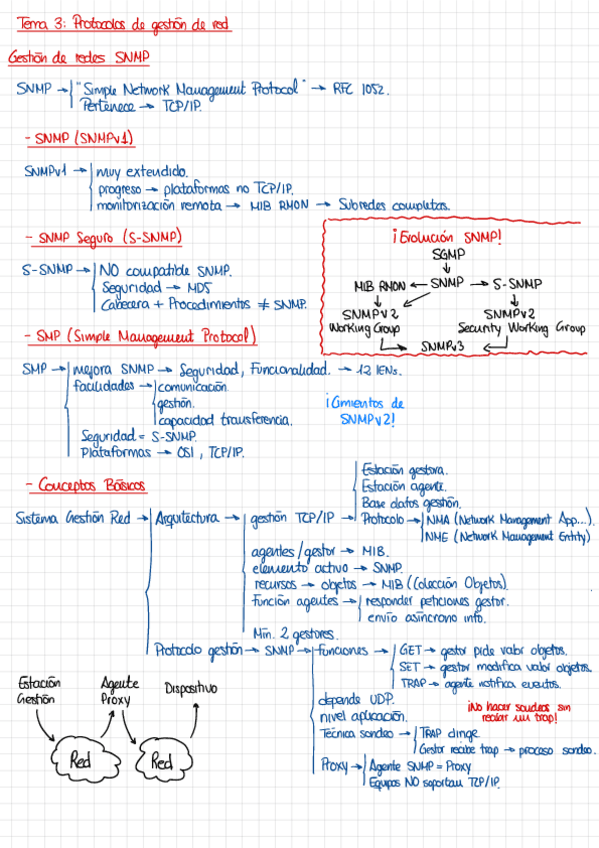 Tema 3: Protocolos de gestión de red
Gestión de redes SNMP
SNMP → "Simple Network Management Protocol" → RFC 1052.
Pertenece → TCP/IP.
- SNMP (SNMPv1)
SNMPv1 → muy extendido.
progreso → plataformas no TCP/IP.
monitorización remota → MIB RMON → Subredes completas.
- SNMP Seguro (S-SNMP)
S-SNMP → NO compatible SNMP.
Seguridad → MD5
Cabecera + Procedimientos ≠ SNMP.
¡Evolución SNMP!
SGMP
↓
MIB RMON ← SNMP → S-SNMP
SNMPv2 Working Group
SNMPv2 Security Working Group
SNMPv3
- SMP (Simple Management Protocol)
SMP → mejora SNMP → Seguridad, Funcionalidad. → 12 IENs.
facilidades → comunicación.
gestión.
capacidad transferencia.
Seguridad = S-SNMP.
Plataformas → OSI, TCP/IP.
¡Cimientos de
SNMPv2!
- Conceptos Básicos
Sistema Gestión Red → Arquitectura → gestión TCP/IP → Estación gestora.
Estación agente.
Base datos gestión.
Protocolo → NMA (Network Management App...).
NME (Network Management Entity)
agentes/gestor → MIB.
elemento activo → SNMP.
recursos → objetos → MIB (Colección Objetos).
Función agentes → responder peticiones gestor.
envío asíncrono info.
Mín. 2 gestores.
Protocolo gestión → SNMP → funciones → GET → gestor pide valor objetos.
SET → gestor modifica valor objetos.
TRAP → agente notifica eventos.
depende UDP.
nivel aplicación.
¡No hacer sondeos sin
recibir un trap!
Técnica sondeo → TRAP dirige.
Gestor recibe trap → proceso sondeo.
Proxy → Agente SNMP = Proxy
Equipos NO soportan TCP/IP.
Estación
Gestión
Agente
Proxy
Dispositivo
Red
Red